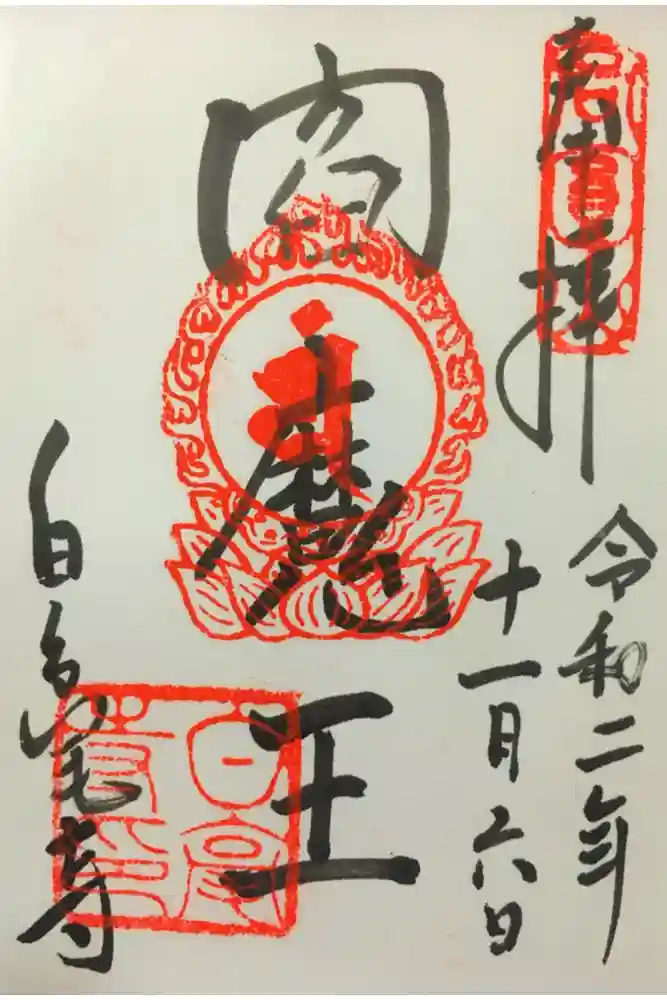 奉拝
令和二年
十一月六日
閻魔王
白毫寺
白毫
寺印